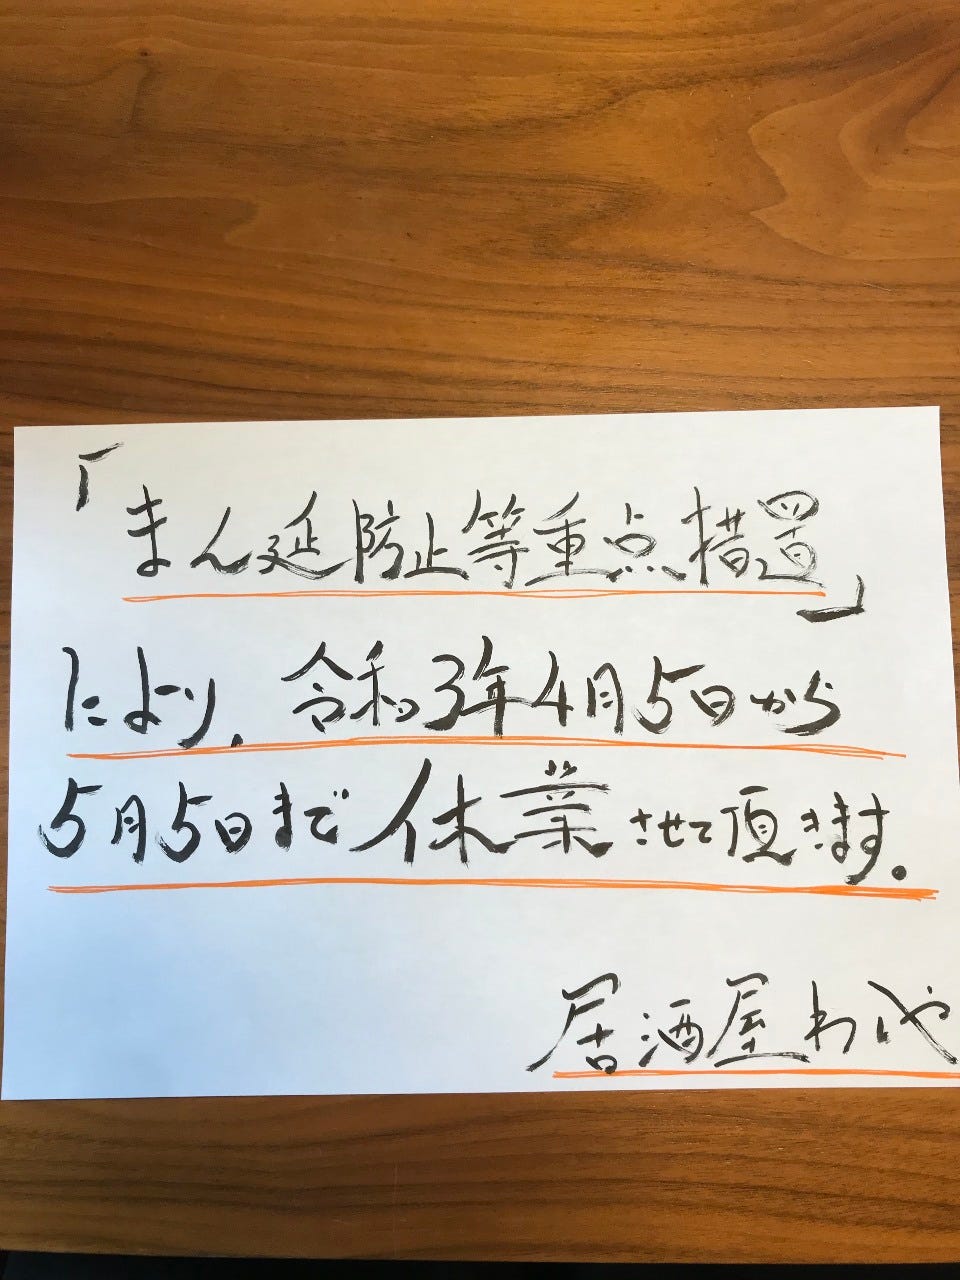 「まん延防止等重点措置」
により、令和3年4月5日から
5月5日まで休業させて頂きます。
居酒屋わしや